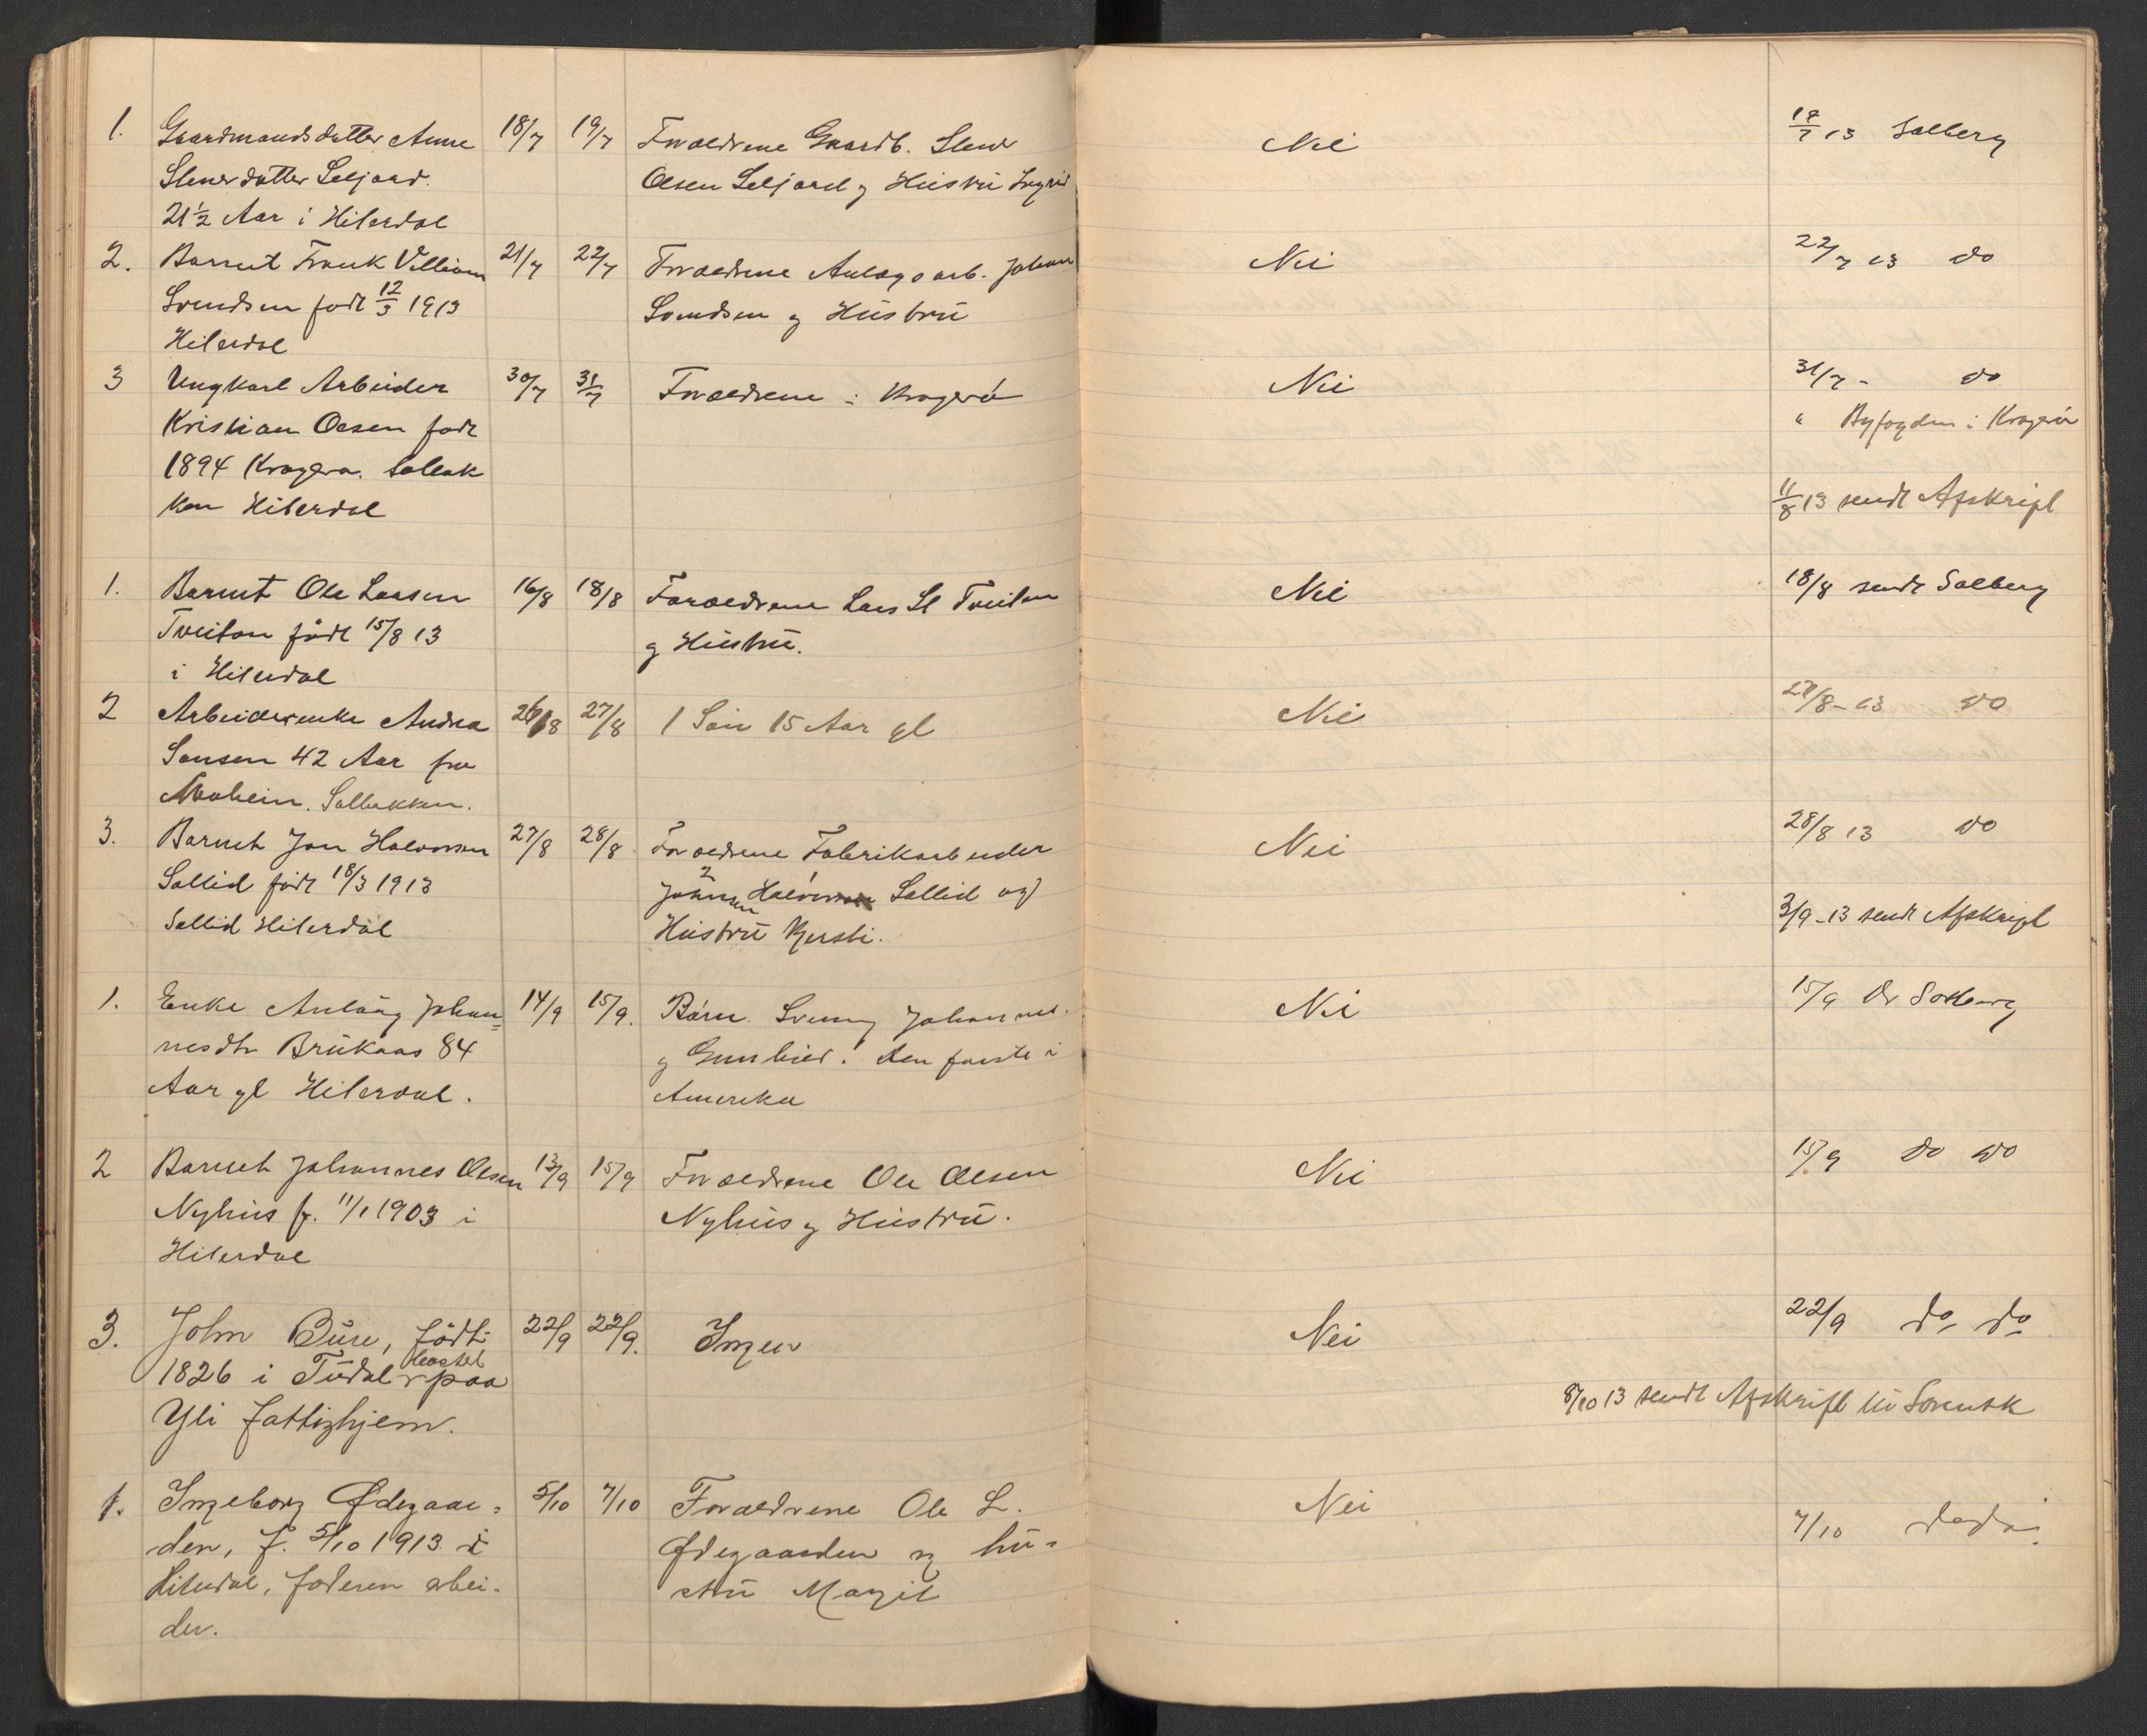 1. Gaardmandsdatter Anne 18/7 19/7 Foraeldrene Gaardb. Stener Nei 19/7 13 Solberg
Stenersdatter Seljord. Olsen Seljord og Hustru Ingrid
21½ Aar i Hiterdal
2. Barnet Frank Villiam 21/7 22/7 Foraeldrene Anlægsarb. Johan Nei 22/7 13 do
Svendsen født 12/3 1913 Svendsen og Hustru
Hiterdal
3 Ungkarl Arbeider 30/7 31/7 Foraeldrene i Kragerø Nei 31/7 - do
Kristian Olsen født " Byfogden i Kragerø
1894 Kragerø. Solbak
ken Hiterdal 11/8 13 sendt Afskript
1. Barnet Ole Larsen 16/8 18/8 Foraeldrene Lars Tveitan Nei 18/8 sendt Solberg
Tveitan født 15/8 13 og Hustru.
i Hiterdal
2 Arbeiderenke Andrea 26/8 27/8 1 Søn 15 Aar gl Nei 27/8-13 do
Jansen 42 Aar fra
Solbakken.
3. Barnet Jon Halvorsen 27/8 28/8 Foraeldrene Fabrikarbeider Nei 28/8 13 do
Sollid født 18/3 1913 Sollid og
Sollid Hiterdal Hustru Kjersti. 3/9-13 sendt Afskript
1. Enke Anlaug Johan= 14/9 15/9. Børn Johannes. Nei 15/9 Dr Solberg
nesdtr Brukaas 84 og Gunhild. den første i
Aar gl Hiterdal. Amerika
2 Barnet Johannes Olsen 13/9 15/9 Foraeldrene Ole Olsen Nei 15/9 do do
Nyhus f. 11/1 1903 i Nyhus og Hustru.
Hiterdal
3. John Bure, født 22/9 22/9. Ingen Nei 22/9 do do
1826 i Tudal paa 8/10 13 sendt Afskrift til Sorensk
Yli fattighjem.
1. Ingeborg Ødegaar= 5/10 7/10 Foraeldrene Ole L. Nei 7/10 do do
den, f. 5/10 1913 i Ødegaarden og hu=
Hiterdal, faderen arbei- stru Margit
der.